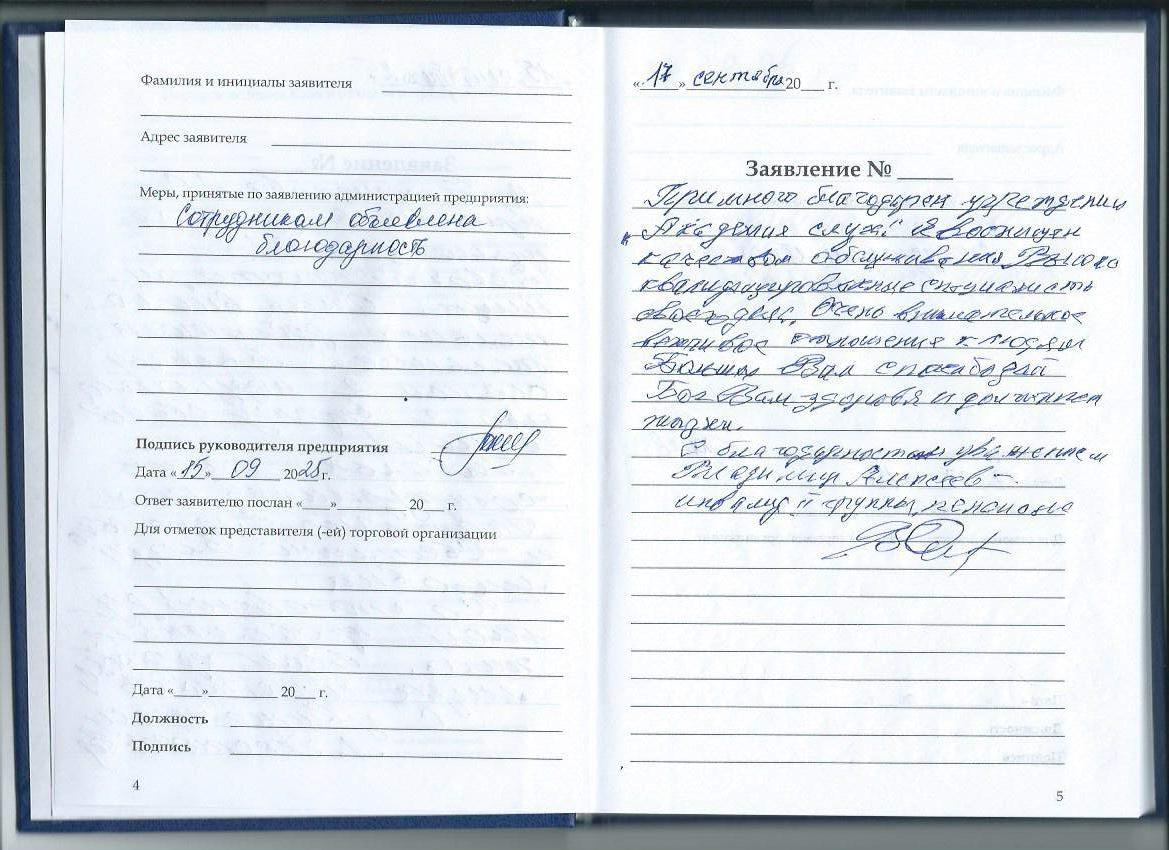 Фамилия и инициалы заявителя
Адрес заявителя
Меры, принятые по заявлению администрацией предприятия:
Сотрудникам объявлена
благодарность
Подпись руководителя предприятия
Дата «15» 09 2025 г.
Ответ заявителю послан «___» ______ 20___ г.
Для отметок представителя (-ей) торговой организации
Дата «___» ______ 20___ г.
Должность
Подпись
4
«17» сентября 20___ г.
Заявление № _____
Премного благодарен учреждению
"Академия слуха" Я восхищен
качеством обслуживания Высоко
квалифицированные специалисты
своего дела. Очень внимательное
вежливое отношения к людям
Большое Вам спасибо дай
Бог Вам здоровья и долгих лет
жизни.
С благодарностью и уважением
Владимир Алексеев
инвалид II группы, пенсионер
5